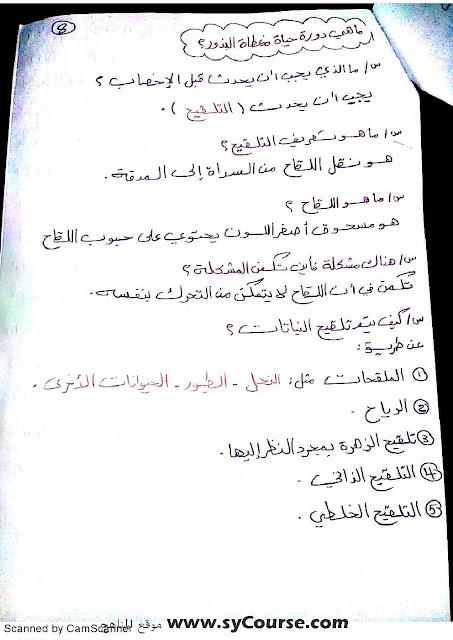 8
ما هي دورة حياة مغطاة البذور؟
س/ ما الذي يجب أن يحدث قبل الإخصاب؟
يجب أن يحدث (التلقيح).
س/ ما هو تعريف التلقيح؟
هو نقل اللقاح من السداة إلى المدقة.
س/ ما هو اللقاح؟
هو مسحوق أصفر اللون يحتوي على حبوب اللقاح
س/ هناك مشكلة فأين تكمن المشكلة؟
تكمن في أن اللقاح لا يتمكن من التحرك بنفسه.
س/ كيف يتم تلقيح النباتات؟
عن طريق:
① الملقحات مثل: النحل - الطيور - الحيوانات الأخرى.
② الرياح.
③ تلقيح الزهرة بمجرد النظر إليها.
④ التلقيح الذاتي.
⑤ التلقيح الخلطي.
موقع المناهج www.syCourse.com
Scanned by CamScanner